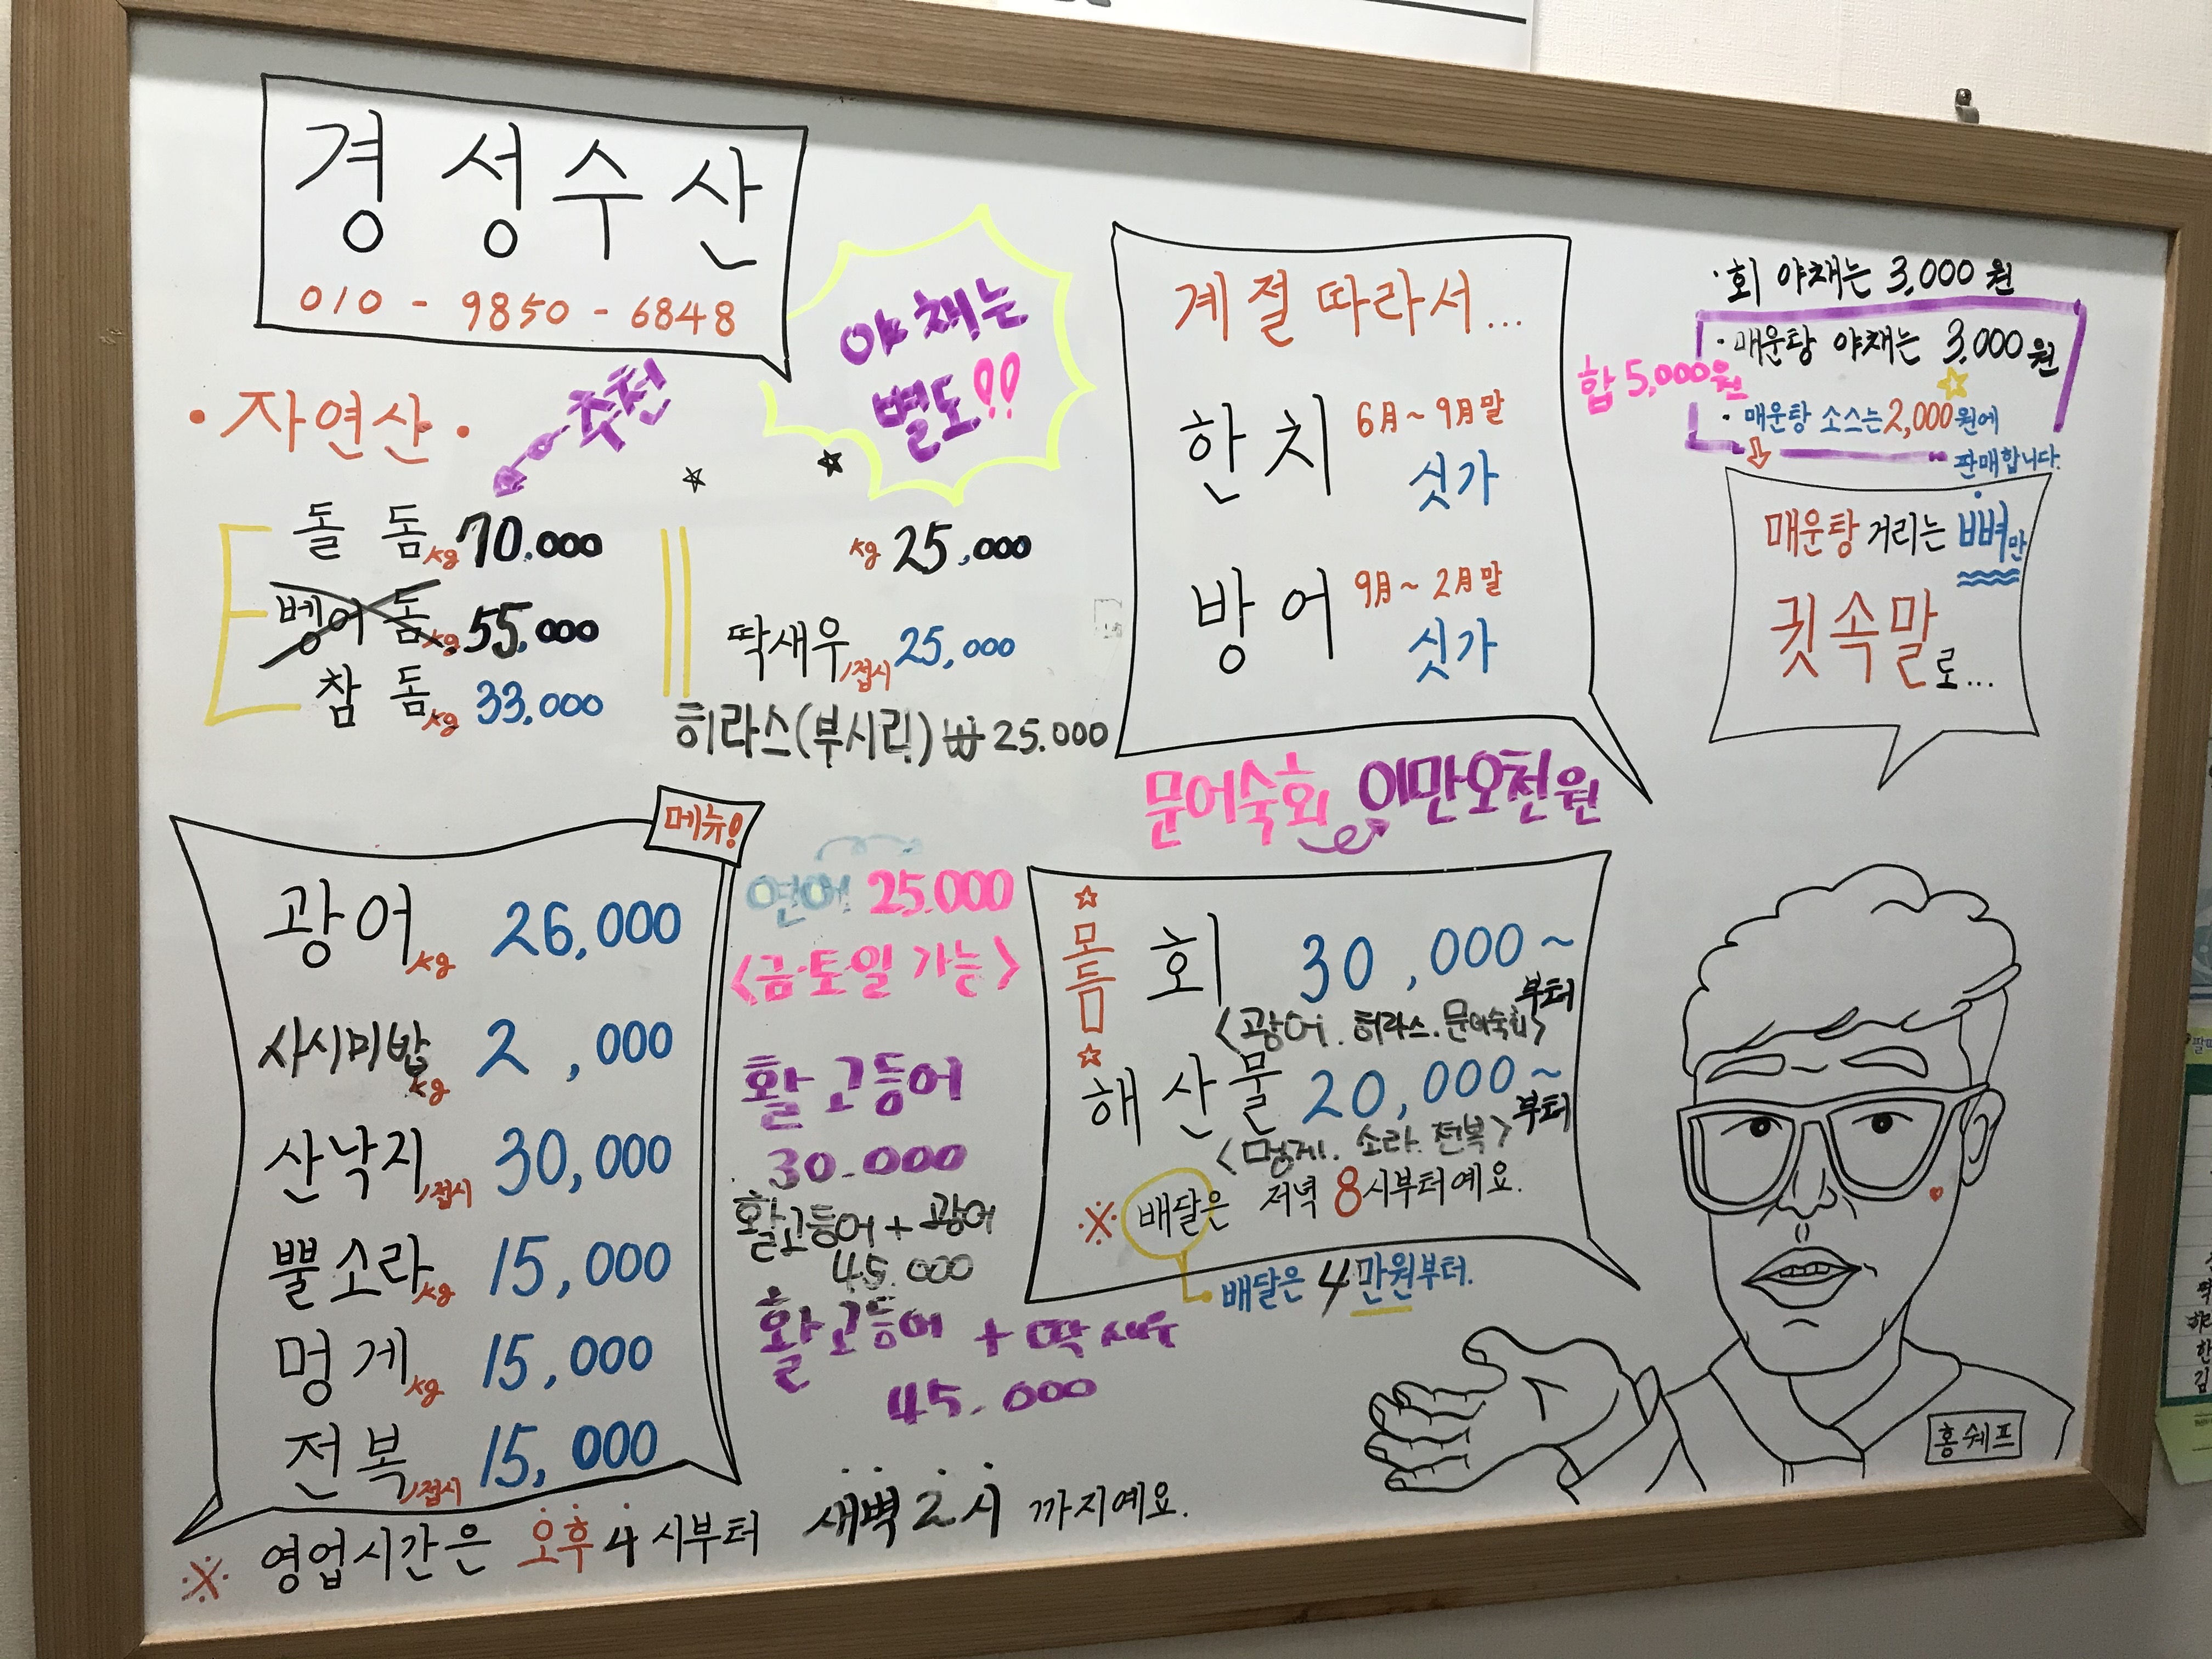 경성수산
010 - 9850 - 6848
야채는
별도!!
·자연산·
추천
돌돔 kg 70.000
벵에돔 kg 55,000
참돔 kg 33,000
kg 25,000
딱새우/접시 25,000
히라스(부시리) ₩ 25.000
계절 따라서...
한치 6月~9月말
싯가
방어 9月~2月말
싯가
·회 야채는 3,000원
·매운탕 야채는 3,000원
합 5,000원
·매운탕 소스는 2,000원에
판매합니다.
매운탕 거리는 뼈만
귓속말로...
문어숙회 이만오천원
메뉴!
광어 kg 26,000
사시미밥 kg 2,000
산낙지/접시 30,000
뿔소라 kg 15,000
멍게 kg 15,000
전복/접시 15,000
연어 25.000
<금·토·일 가능>
활고등어
30.000
활고등어 + 광어
45.000
활고등어 + 딱새우
45.000
☆모듬☆
회 30,000~
부터
<광어. 히라스. 문어숙회>
해산물 20,000~
부터
<멍게. 소라. 전복>
※ 배달은 저녁 8시부터예요.
배달은 4만원부터.
홍쉐프
※ 영업시간은 오후 4시부터 새벽 2시 까지예요.